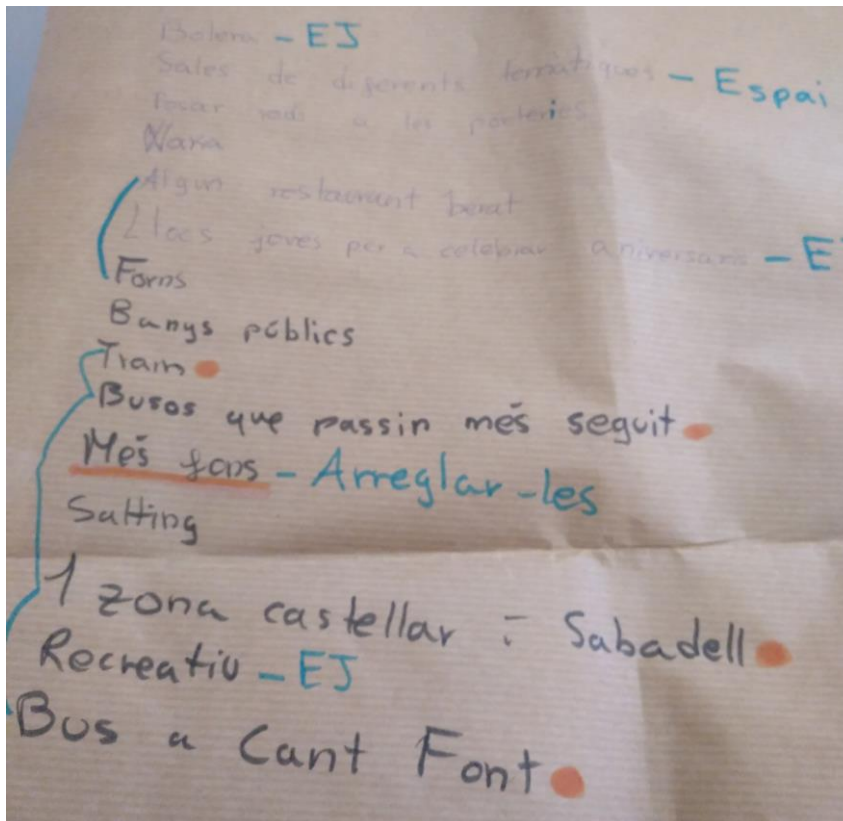 Bolera - EJ
Sales de diferents temàtiques - Espai
Posar a les porteries
Algun restaurant barat
Llocs joves per a celebrar aniversaris - E
Forns
Banys públics
Train
Busos que passin més seguit
Més fons - Arreglar-les
Salting
1 zona castellar i Sabadell
Recreatiu - EJ
Bus a Cant Font